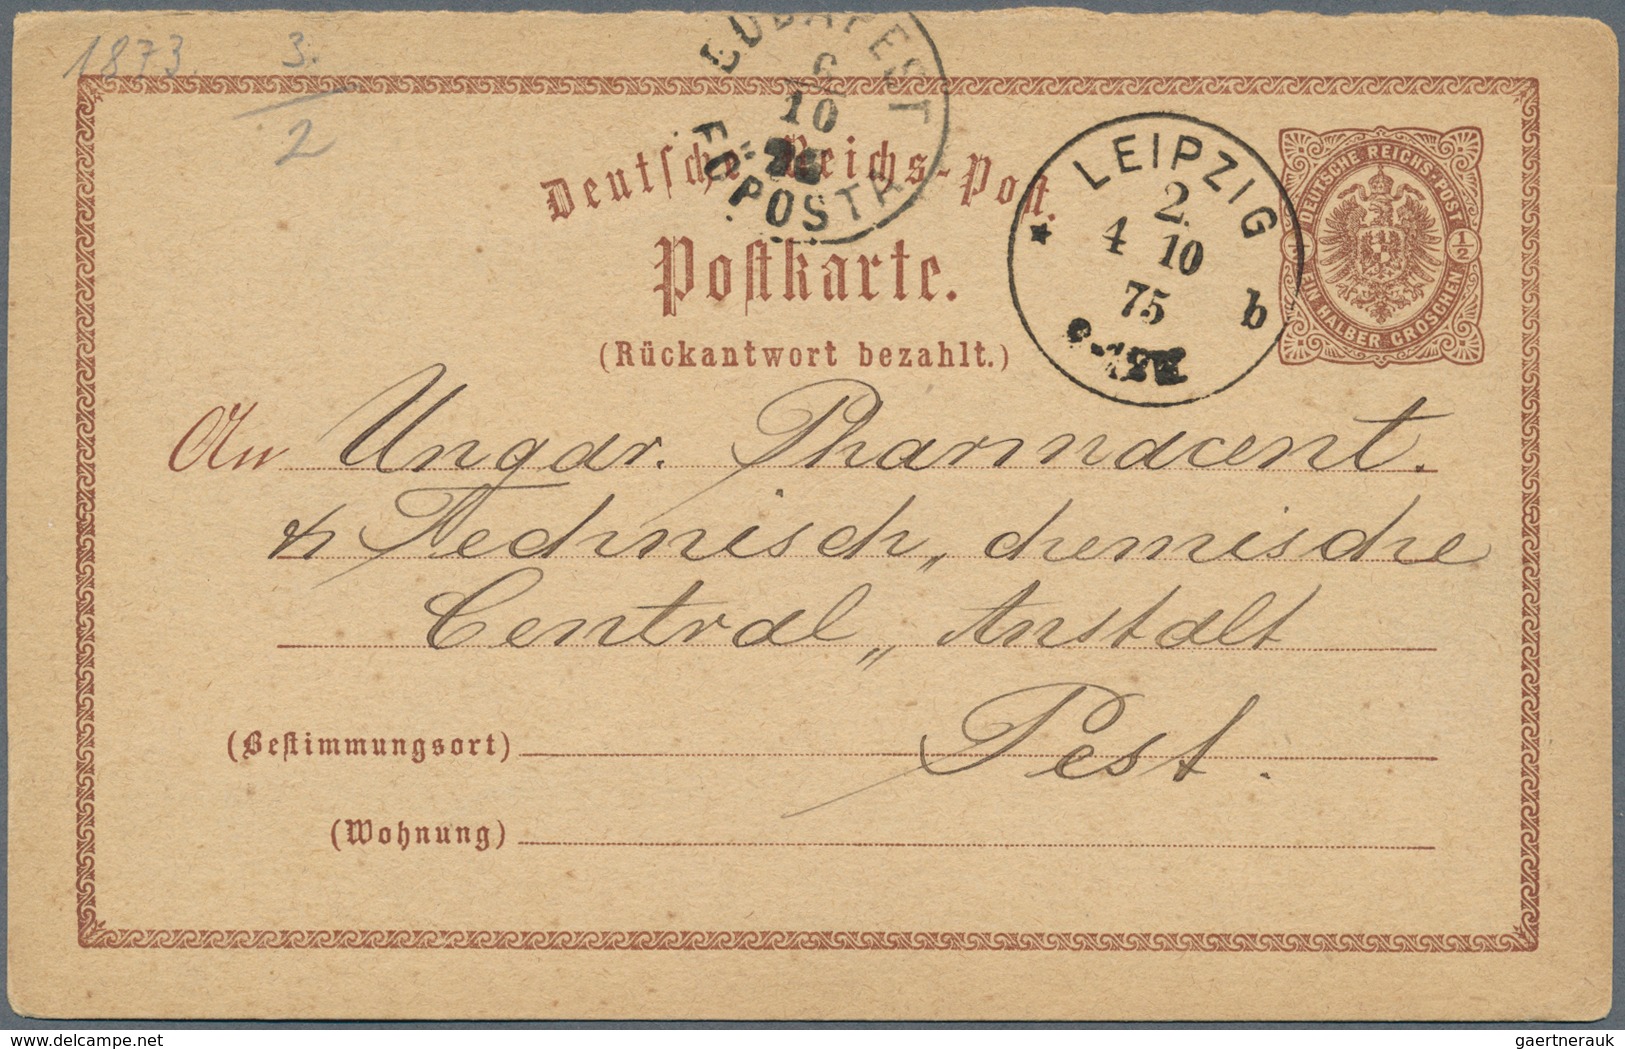 1873. 3.
2
BUDAPEST
6
10
FŐPOSTA
Deutsche Reichs-Post.
Postkarte.
(Rückantwort bezahlt.)
LEIPZIG
2.
4 10
75
b
DEUTSCHE REICHS-POST
1/2 1/2
EIN HALBER GROSCHEN
An Ungar. Pharmaceut.
& Technisch, chemische
Central „ Anstalt
(Bestimmungsort) Pest.
(Wohnung)
www.delcampe.net
gaertnerauk